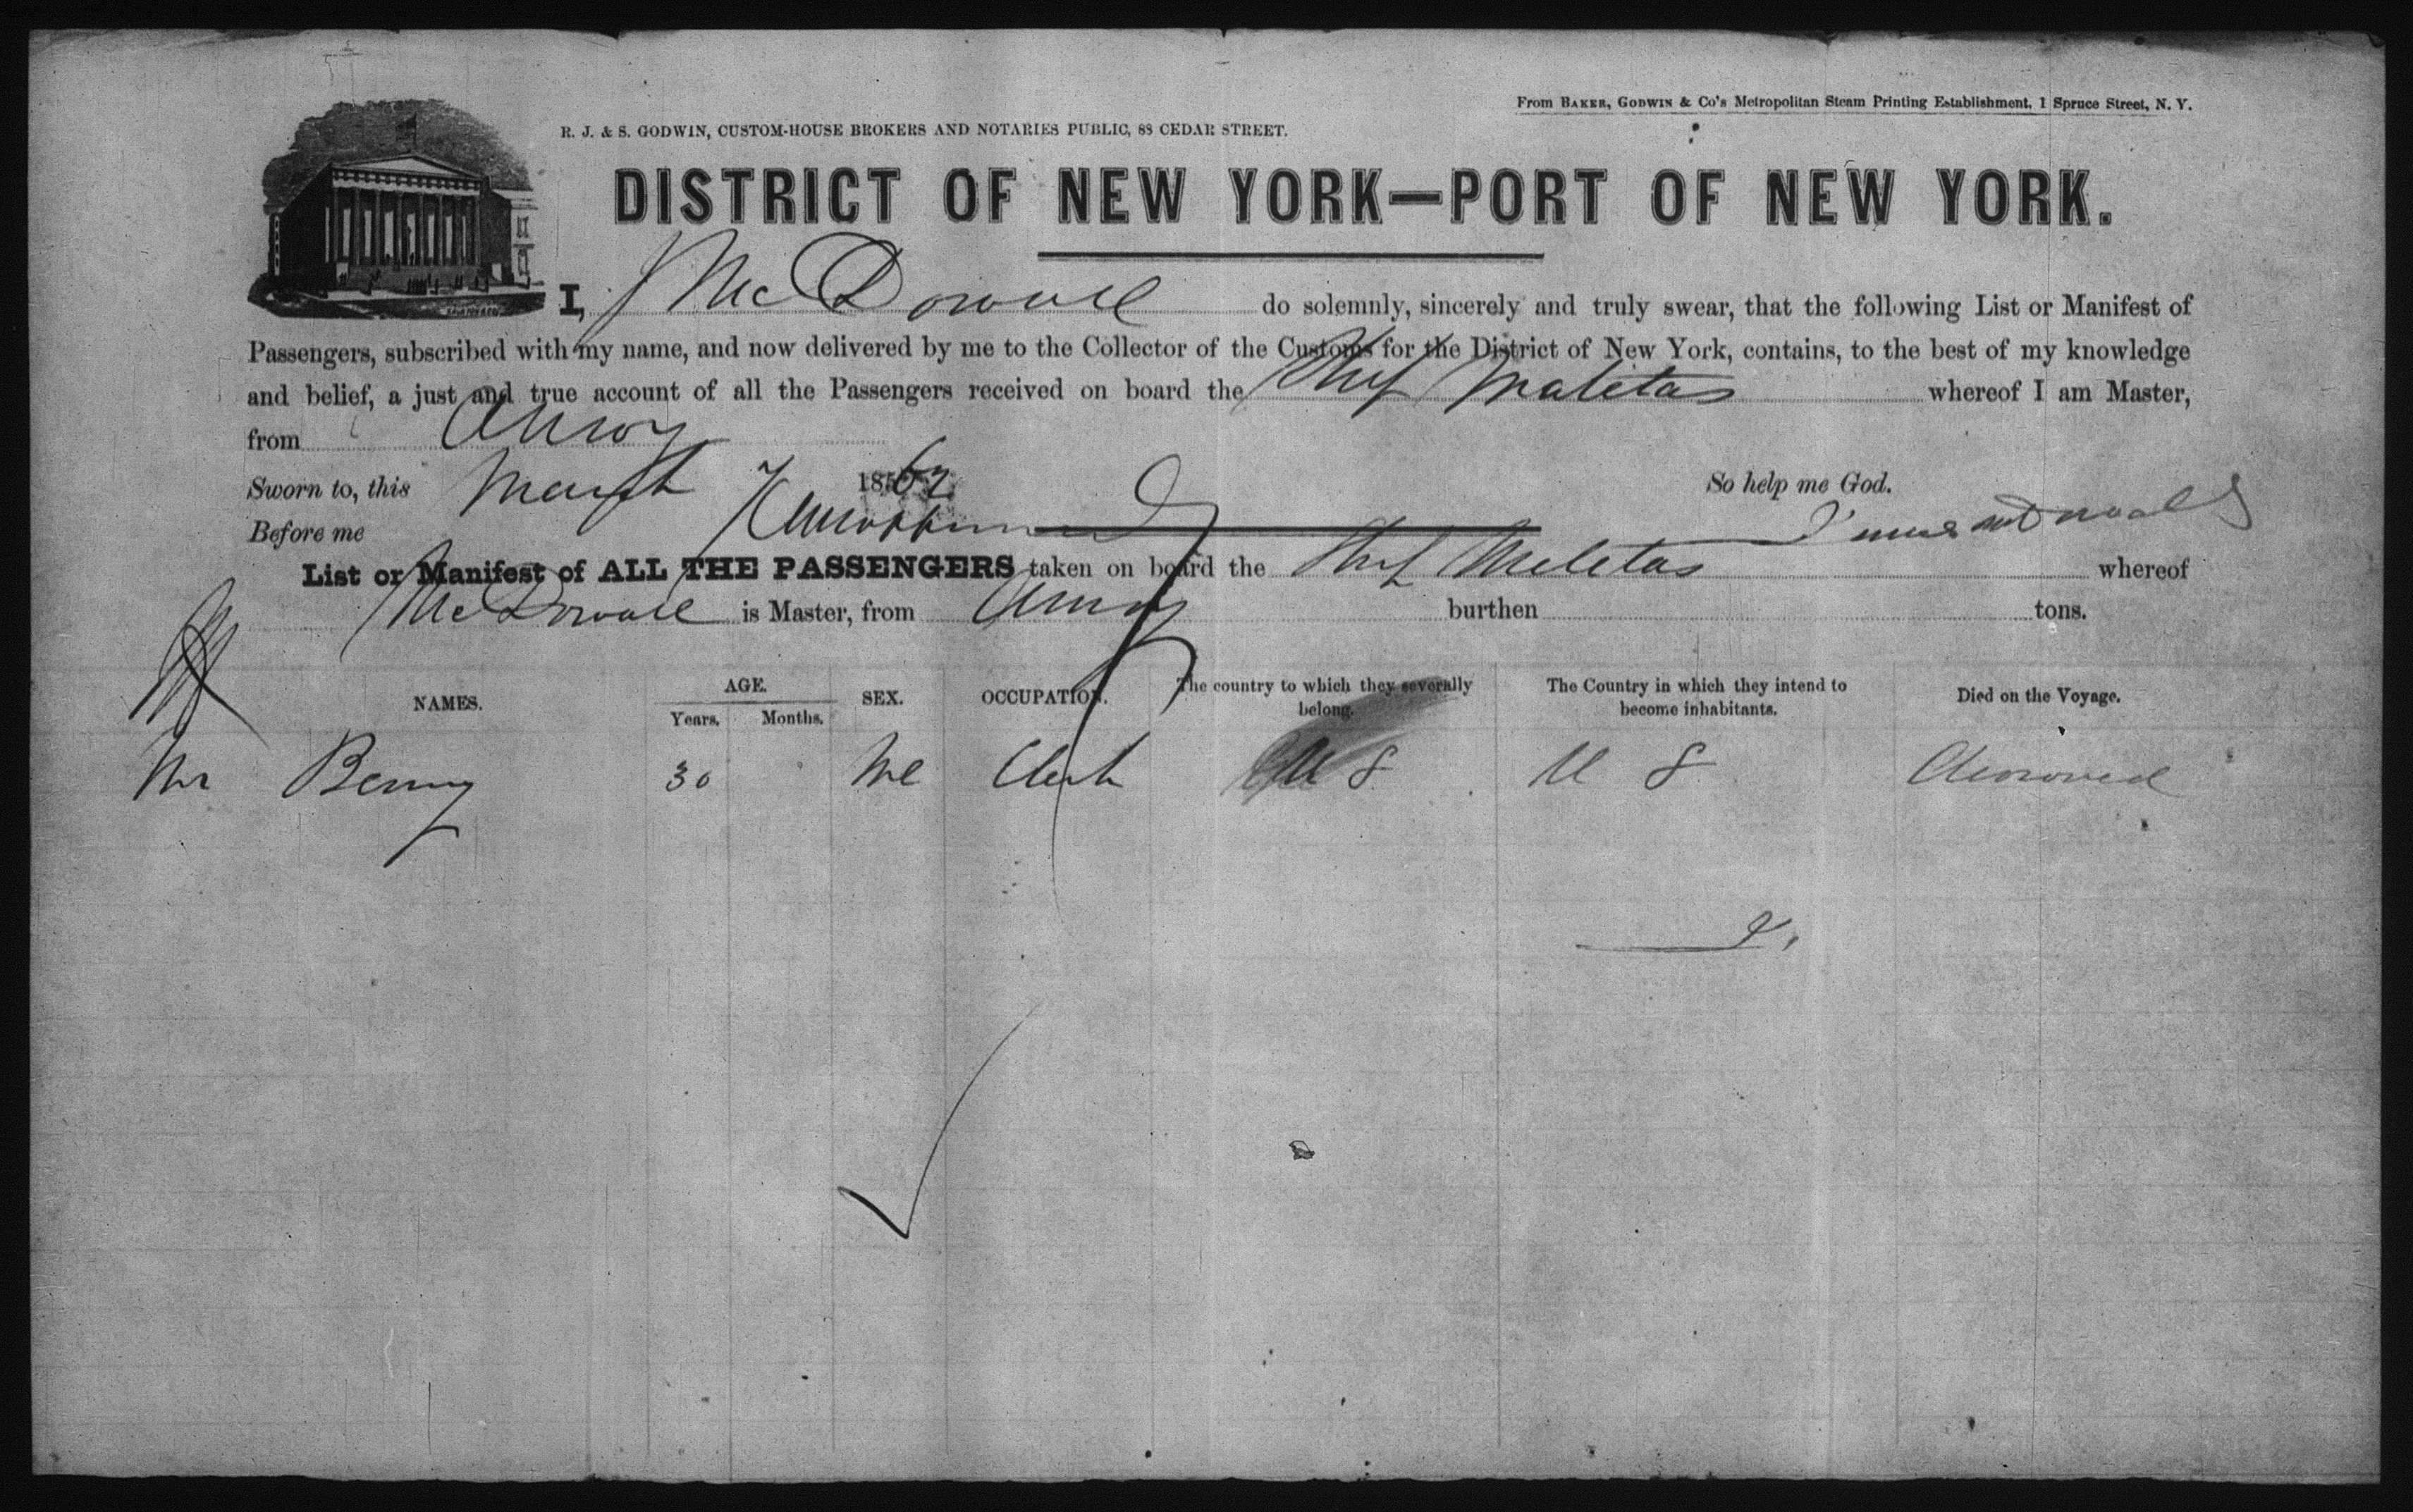 From BAKER, GODWIN & Co's Metropolitan Steam Printing Establishment, 1 Spruce Street, N. Y.
R. J. & S. GODWIN, CUSTOM-HOUSE BROKERS AND NOTARIES PUBLIC, 88 CEDAR STREET.
DISTRICT OF NEW YORK—PORT OF NEW YORK.
I, J McDowall do solemnly, sincerely and truly swear, that the following List or Manifest of
Passengers, subscribed with my name, and now delivered by me to the Collector of the Customs for the District of New York, contains, to the best of my knowledge
and belief, a just and true account of all the Passengers received on board the Ship Maletas whereof I am Master,
from Amoy
Sworn to, this March 7 1862 So help me God.
Before me
List or Manifest of ALL THE PASSENGERS taken on board the Ship Meletas whereof
McDowall is Master, from Amoy burthen tons.
NAMES. AGE. Years. Months. SEX. OCCUPATION. The country to which they severally belong. The Country in which they intend to become inhabitants. Died on the Voyage.
Mr Berry 30 Clerk U S U S